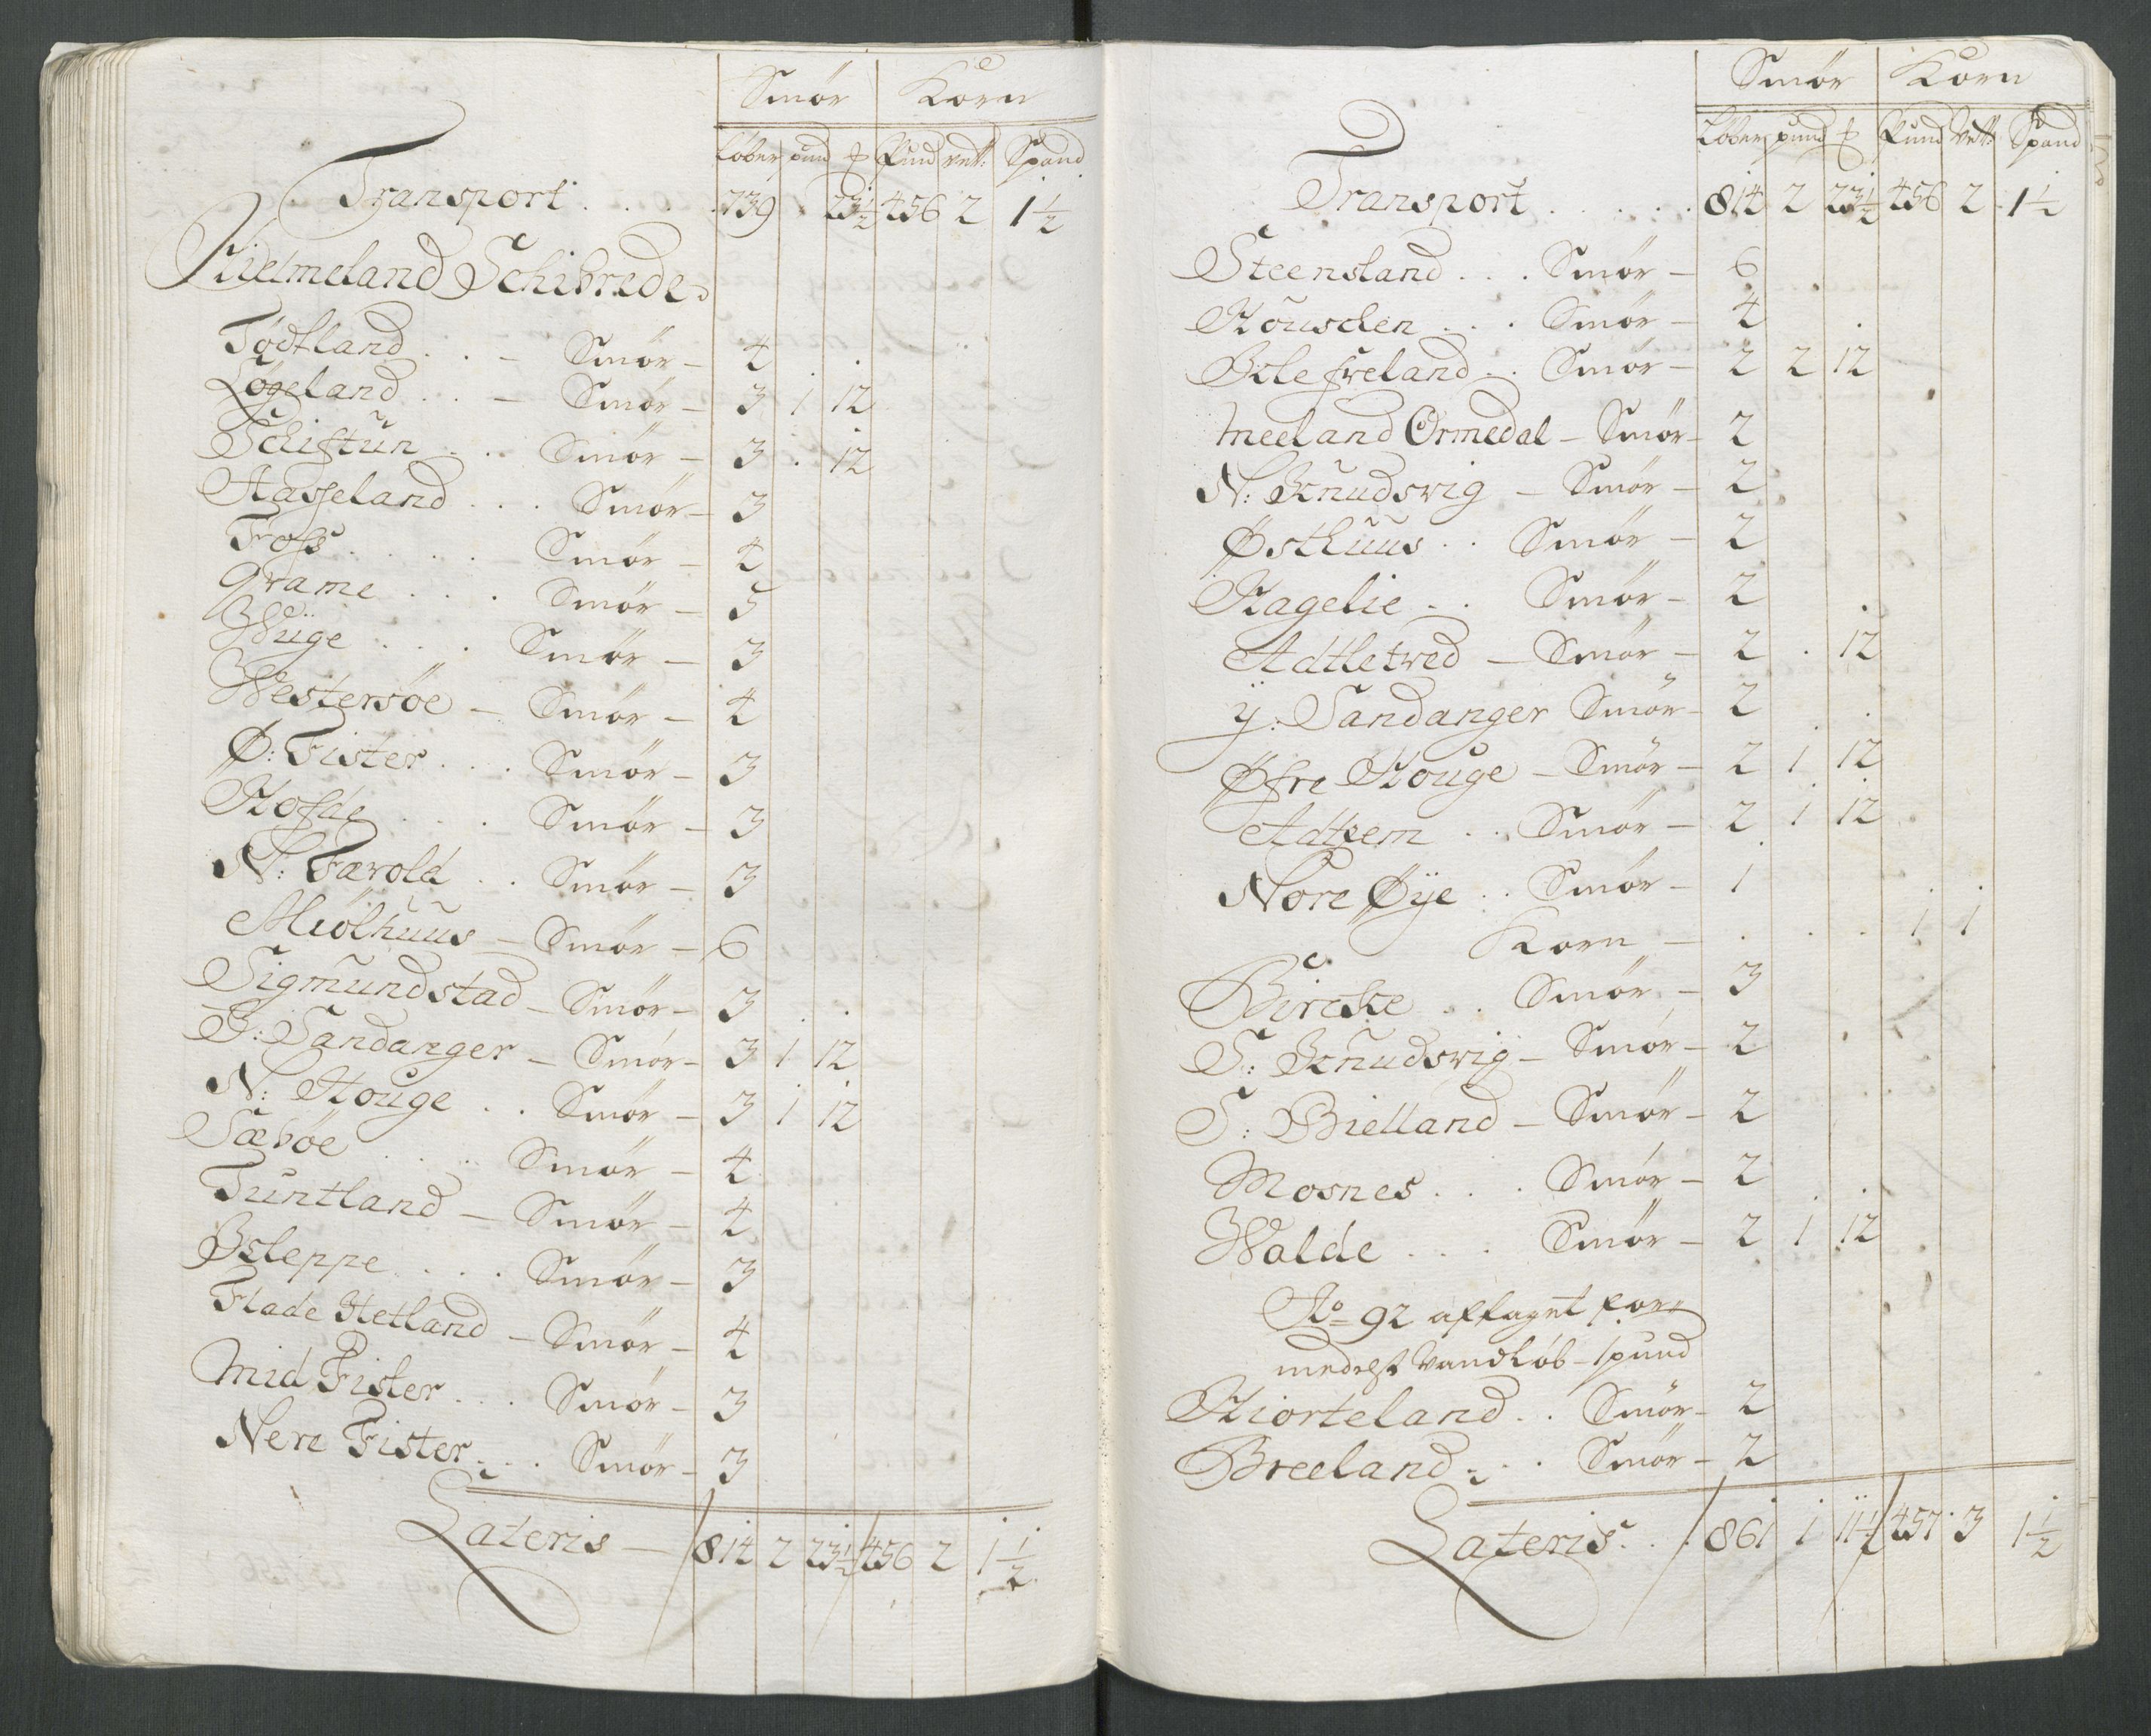 Smör Korn
Löber pund ℔ Pund vett: Spand
Transport . . . . 739 . 23½ 456 2 1½
Hielmeland Schibrede
Tödtland . . – Smör – 4
Lögeland . . – Smör – 3 1 12
Schiftun . . . Smör – 3 . 12
Hasseland . . . Smör – 3
Foss . . . . – Smör – 4
Grame . . . Smör – 5
Wüge . . . Smör – 3
Westersöe – Smör – 4
Ø: Fister . . . Smör – 3
Hofde . . . Smör – 3
N: Færold . . Smör – 3
Miölhuus – Smör – 6
Sigmundstad – Smör – 3
I: Sandanger – Smör – 3 1 12
N: Houge . . Smör – 3 1 12
Sæböe . . . Smör – 4
Tuntland – Smör – 4
Schleppe . . . Smör – 3
Flade Hetland – Smör – 4
Mid Fister . . . Smör – 3
Nere Fister . . . Smör – 3
Lateris – 814 2 23½ 456 2 1½
Smör Korn
Löber pund ℔ Pund Vett: Spand
Transport . . . . . 814 2 23½ 456 2 1½
Steensland . . . Smör – 6
Housden . . . Smör – 4
Smör – 2 2 12
Meeland Ormedal – Smör – 2
N: Knudsvig – Smör – 2
Østhuus . . Smör – 2
Hagelie . . Smör – 2
Adtletved – Smör – 2 . 12
ÿ: Sandanger Smör – 2
Øfre Houge – Smör – 2 1 12
Adtsem . . Smör – 2 1 12
Nore Øÿe . . Smör – 1
Korn – . . . 1 1
Bircke . . Smör – 3
S: Knudsvig – Smör – 2
S: Bielland – Smör – 2
Mosnes . . . Smör – 2
Walde . . . Smör – 2 1 12
Ao 92 aftaget for
medelst Vandlöb – 1 pund
Hiorteland . . Smör – 2
Breeland . . . Smör – 2
Lateris . . 861 1 11½ 457 3 1½